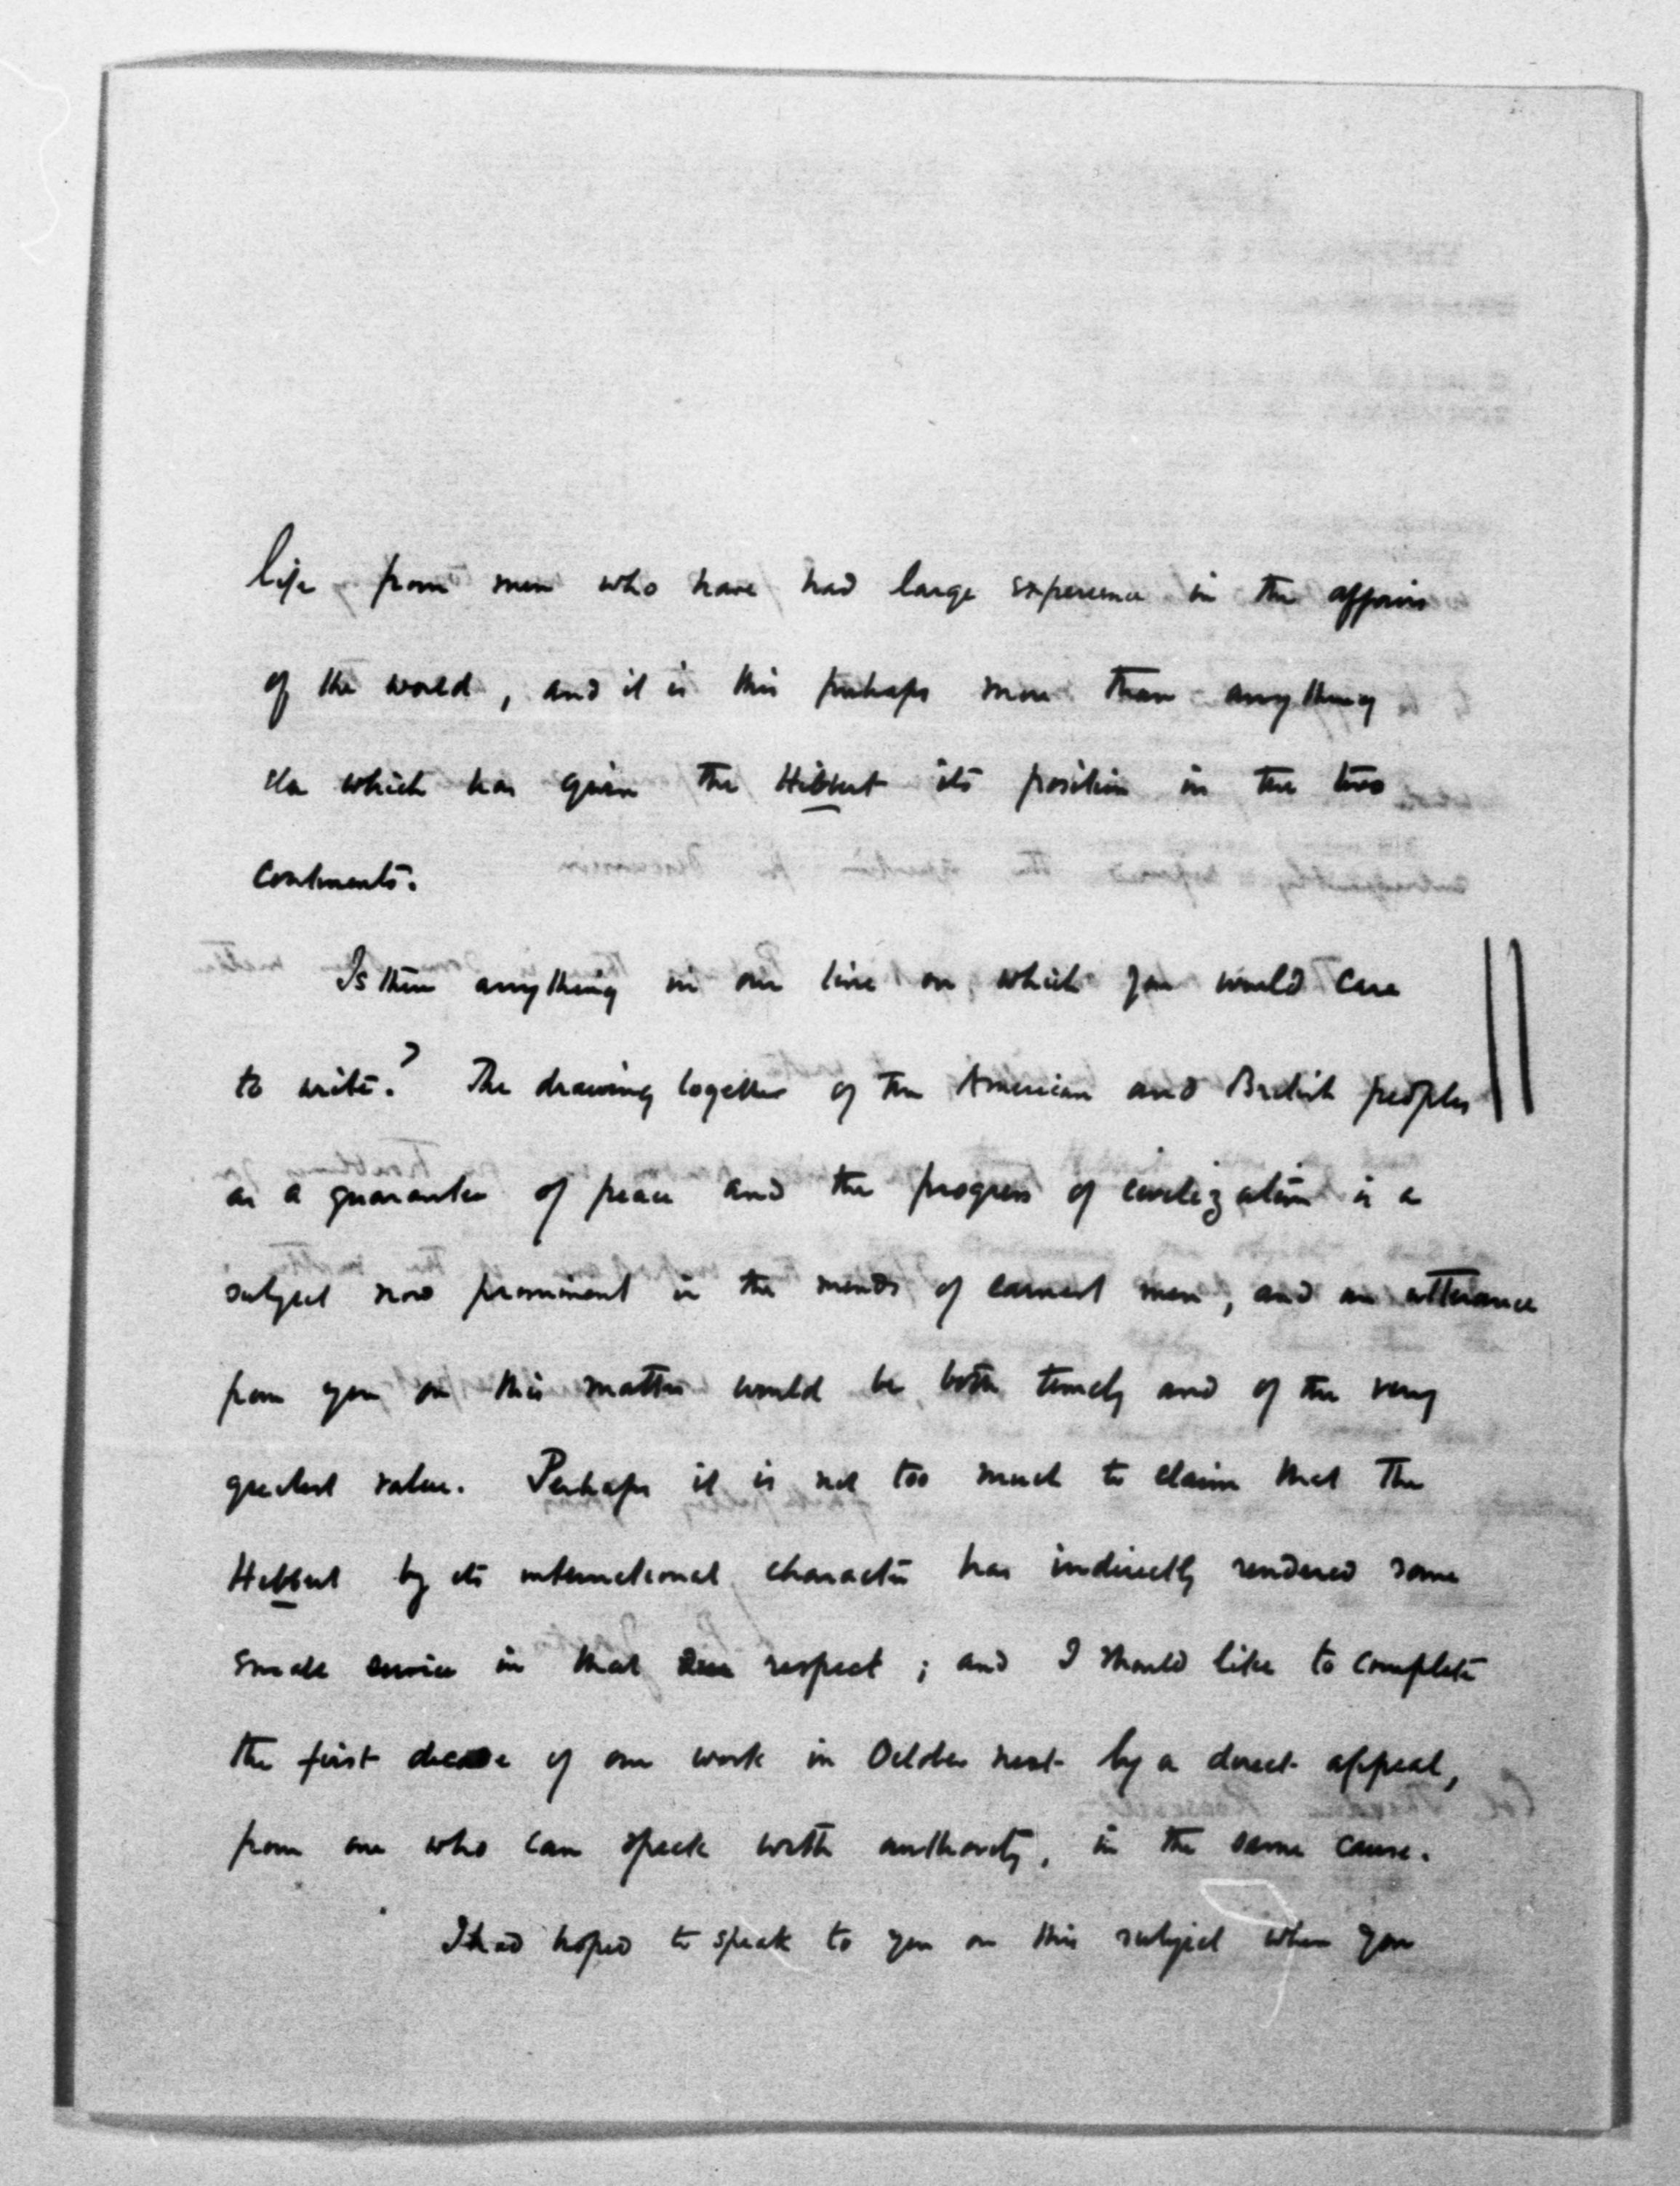 life from men who have had large experience in the affairs
of the world, and it is this perhaps more than anything
else which has given the Hibbert its position in the two
continents.
Is there anything in our line on which you would care
to write? The drawing together of the American and British peoples
as a guarantee of peace and the progress of civilization is a
subject now prominent in the minds of earnest men, and an utterance
from you on this matter would be both timely and of the very
greatest value. Perhaps it is not too much to claim that The
Hibbert by its international character has indirectly rendered some
small service in that respect; and I should like to complete
the first decade of our work in October next by a direct appeal,
from one who can speak with authority, in the same cause.
I had hoped to speak to you on this subject when you